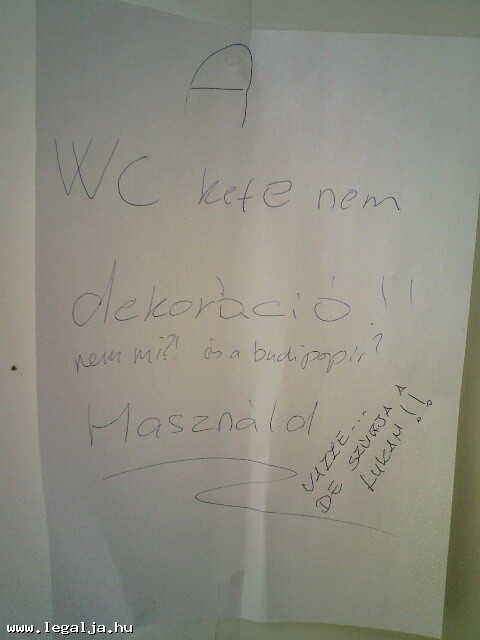 A
WC kefe nem
dekoráció!!
nem mi?! és a budipapír?
Használd
VAZZE...
DE SZÚRJA A
LUKAM!!
www.legalja.hu